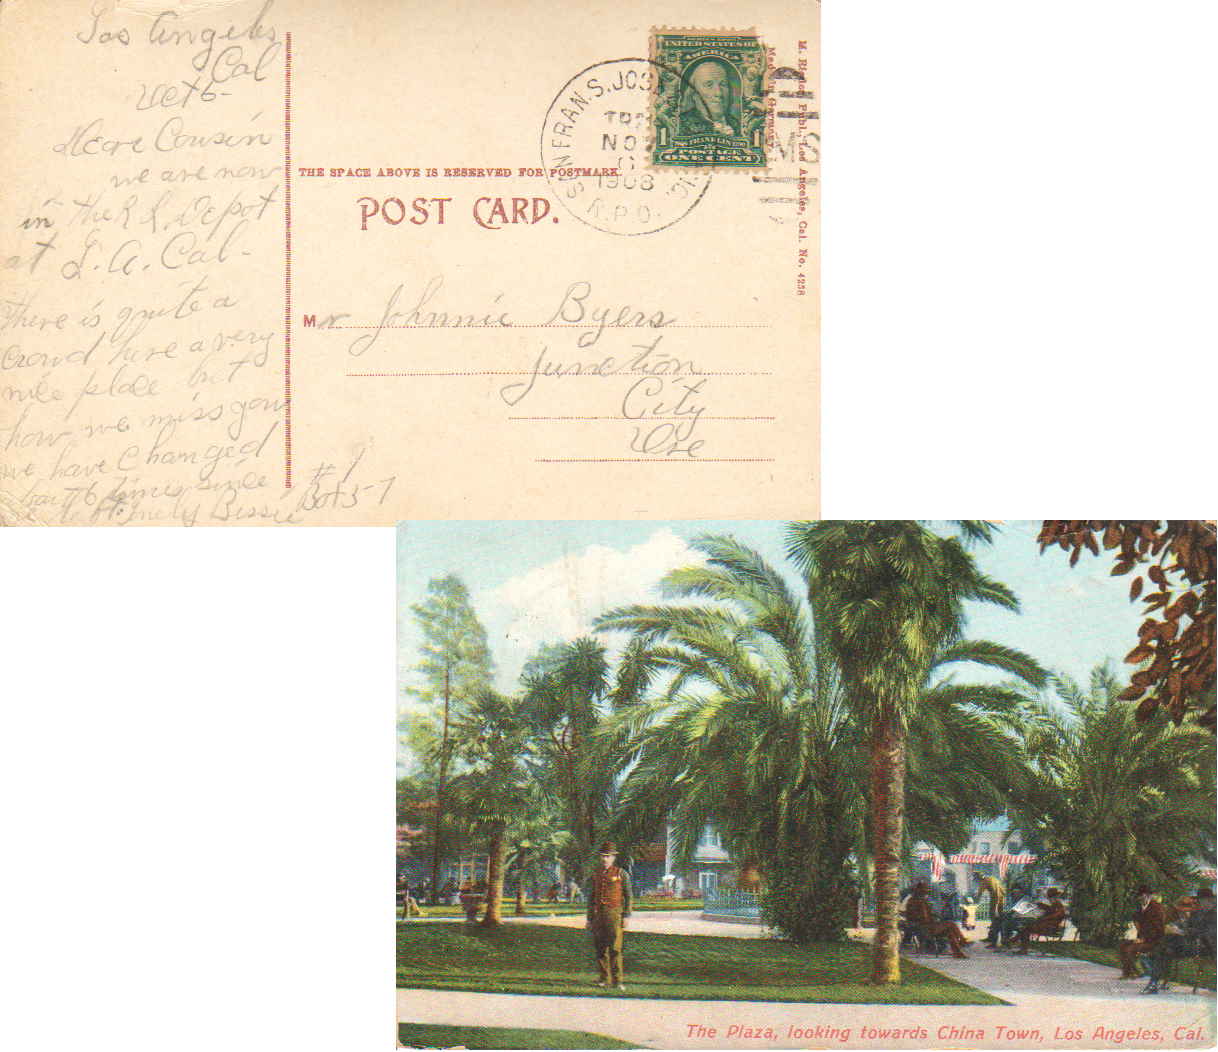 Los Angeles
Cal
Oct 6-
Deare Cousin
we are now
in the R R Depot
at L. A. Cal-
there is quite a
crowd here a very
nice place but
how we miss you
we have changed
6 times since
Bessie
# 1
Box 57
THE SPACE ABOVE IS RESERVED FOR POSTMARK.
POST CARD.
Mr Johnnie Byers
Junction
City
Ore
SAN FRAN. S. JOSE
NOV
1908
R.P.O.
UNITED STATES OF
AMERICA
1 FRANKLIN 1
POSTAGE
ONE CENT
M. Rieder, Publ., Los Angeles, Cal. No. 4238
Made in Germany
The Plaza, looking towards China Town, Los Angeles, Cal.